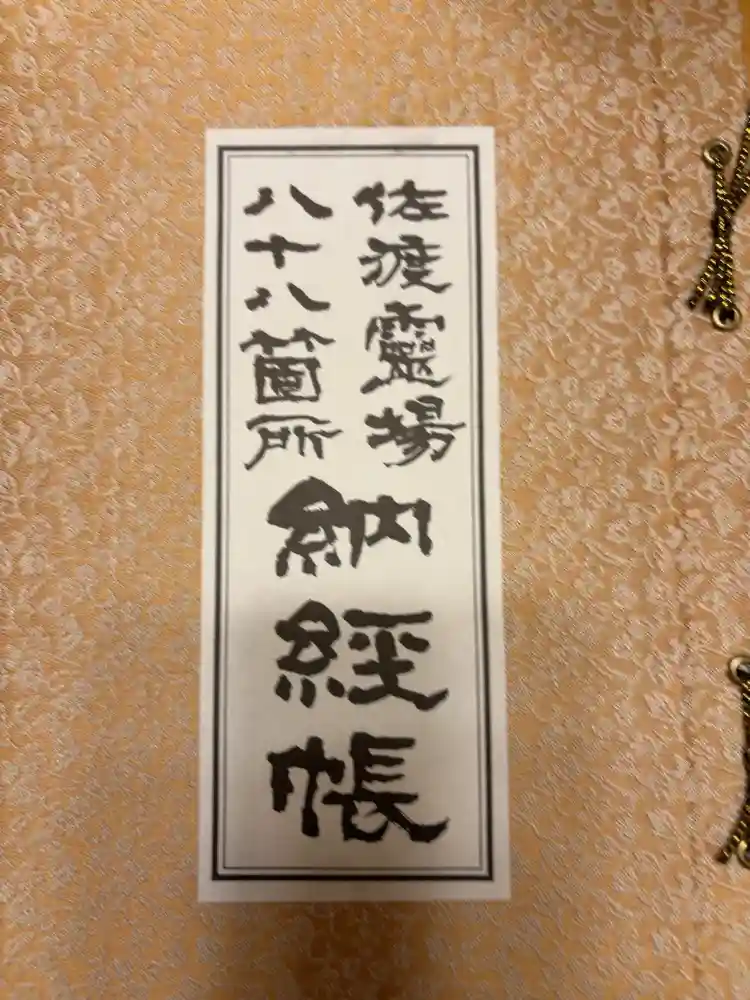 佐渡靈場
八十八箇所
納経帳